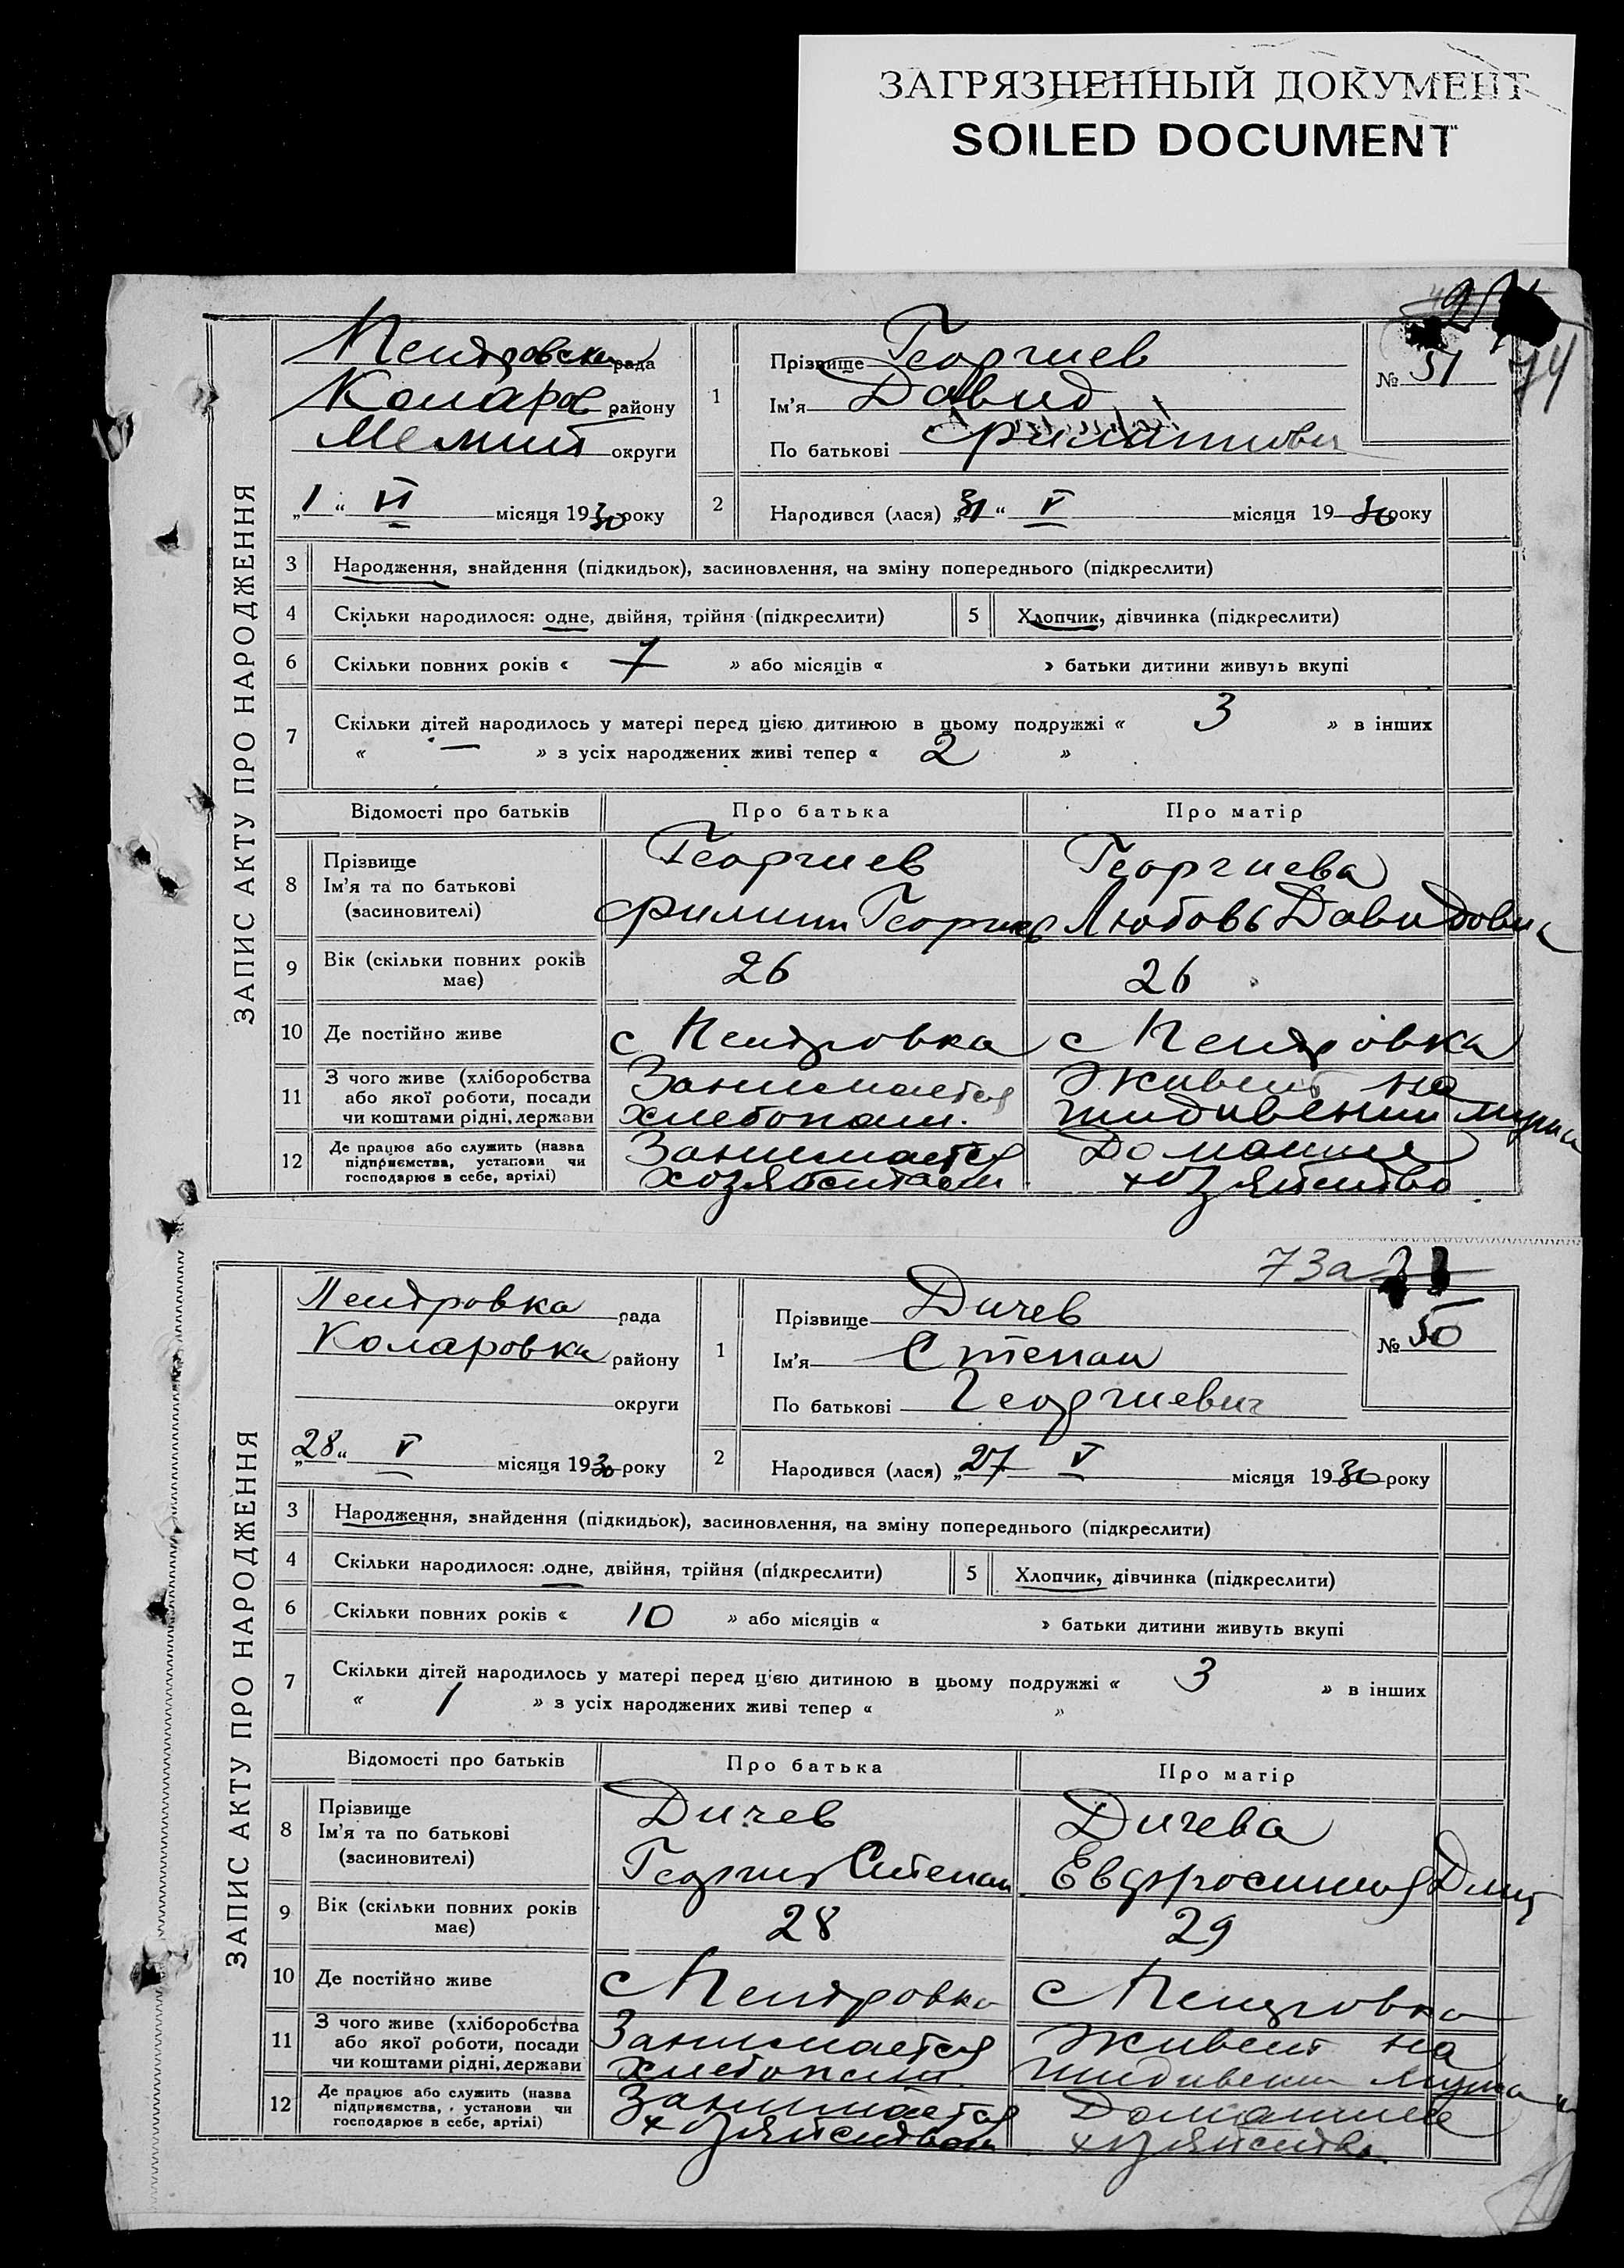 ЗАГРЯЗНЕННЫЙ ДОКУМЕНТ
SOILED DOCUMENT
74
ЗАПИС АКТУ ПРО НАРОДЖЕННЯ
Петровска рада
Коларов району
Мелит округи
„1“ VI місяця 1930 року
1 Прізвище Георгиев
Ім'я Давид
По батькові Филиппович
№ 51
2 Народився (лася) „31“ V місяця 1930 року
3 Народження, знайдення (підкидьок), засиновлення, на зміну попереднього (підкреслити)
4 Скільки народилося: одне, двійня, трійня (підкреслити) 5 Хлопчик, дівчинка (підкреслити)
6 Скільки повних років « 7 » або місяців « » батьки дитини живуть вкупі
7 Скільки дітей народилось у матері перед цією дитиною в цьому подружжі « 3 » в інших
« — » з усіх народжених живі тепер « 2 »
Відомості про батьків Про батька Про матір
8 Прізвище
Ім'я та по батькові
(засиновителі)
Георгиев
Филипп Георгиев
Георгиева
Любовь Давидовна
9 Вік (скільки повних років
має)
26
26
10 Де постійно живе с Петровка с Петровка
11 З чого живе (хліборобства
або якої роботи, посади
чи коштами рідні, держави
Занимается
хлебопаш.
Живет на
иждивении мужа
12 Де працює або служить (назва
підприємства, установи чи
господарює в себе, артілі)
Занимается
хозяйством
Домашнее
хозяйство
73а
ЗАПИС АКТУ ПРО НАРОДЖЕННЯ
Петровка рада
Коларовка району
округи
„28“ V місяця 1930 року
1 Прізвище Дичев
Ім'я Степан
По батькові Георгиевич
№ 50
2 Народився (лася) „27 V місяця 1930 року
3 Народження, знайдення (підкидьок), засиновлення, на зміну попереднього (підкреслити)
4 Скільки народилося: одне, двійня, трійня (підкреслити) 5 Хлопчик, дівчинка (підкреслити)
6 Скільки повних років « 10 » або місяців « » батьки дитини живуть вкупі
7 Скільки дітей народилось у матері перед цією дитиною в цьому подружжі « 3 » в інших
« 1 » з усіх народжених живі тепер « »
Відомості про батьків Про батька Про матір
8 Прізвище
Ім'я та по батькові
(засиновителі)
Дичев
Георгий Степан
Дичева
Евдфросиния Дмит
9 Вік (скільки повних років
має)
28
29
10 Де постійно живе с Петровка с Петровка
11 З чого живе (хліборобства
або якої роботи, посади
чи коштами рідні, держави
Занимается
хлебопаш.
Живет на
иждивении мужа
12 Де працює або служить (назва
підприємства, установи чи
господарює в себе, артілі)
Занимается
хозяйством
Домашнее
хозяйство